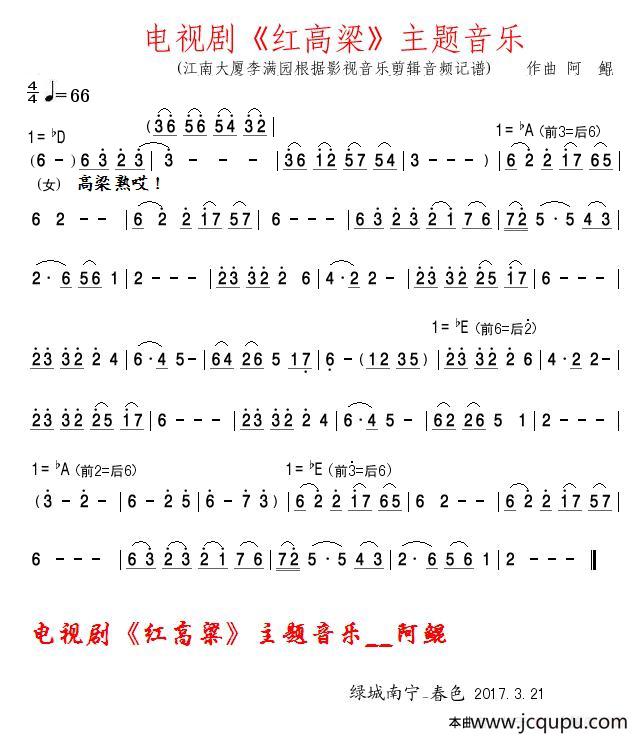 电视剧《红高粱》主题音乐
(江南大厦李满园根据影视音乐剪辑音频记谱) 作曲 阿 鲲
4/4 ♩=66
(36 56 54 32
1=♭D 1=♭A (前3=后6)
(6 -) 6 3 2 3 | 3 - - - | 36 12 57 54 | 3 - - -) | 6 2 2 17 65 |
(女) 高粱熟哎!
6 2 - - | 6 2 2 17 57 | 6 - - - | 63 23 21 76 | 72 5·5 43 |
2·6 56 1 | 2 - - - | 23 32 2 6 | 4·2 2 - | 23 32 25 17 | 6 - - - |
1=♭E (前6=后2)
23 32 2 4 | 6·4 5 - | 64 26 5 17 | 6 - (12 35) | 23 32 2 6 | 4·2 2 - |
23 32 25 17 | 6 - - - | 23 32 2 4 | 6·4 5 - | 62 26 5 1 | 2 - - - |
1=♭A (前2=后6) 1=♭E (前3=后6)
(3 - 2 - | 6 - 2 5 | 6 - 7 3) | 6 2 2 17 65 | 6 2 - - | 6 2 2 17 57 |
6 - - - | 63 23 21 76 | 72 5·5 43 | 2·6 56 1 | 2 - - - ‖
电视剧《红高粱》主题音乐__阿鲲
绿城南宁_春色 2017.3.21
本曲www.jcqupu.com